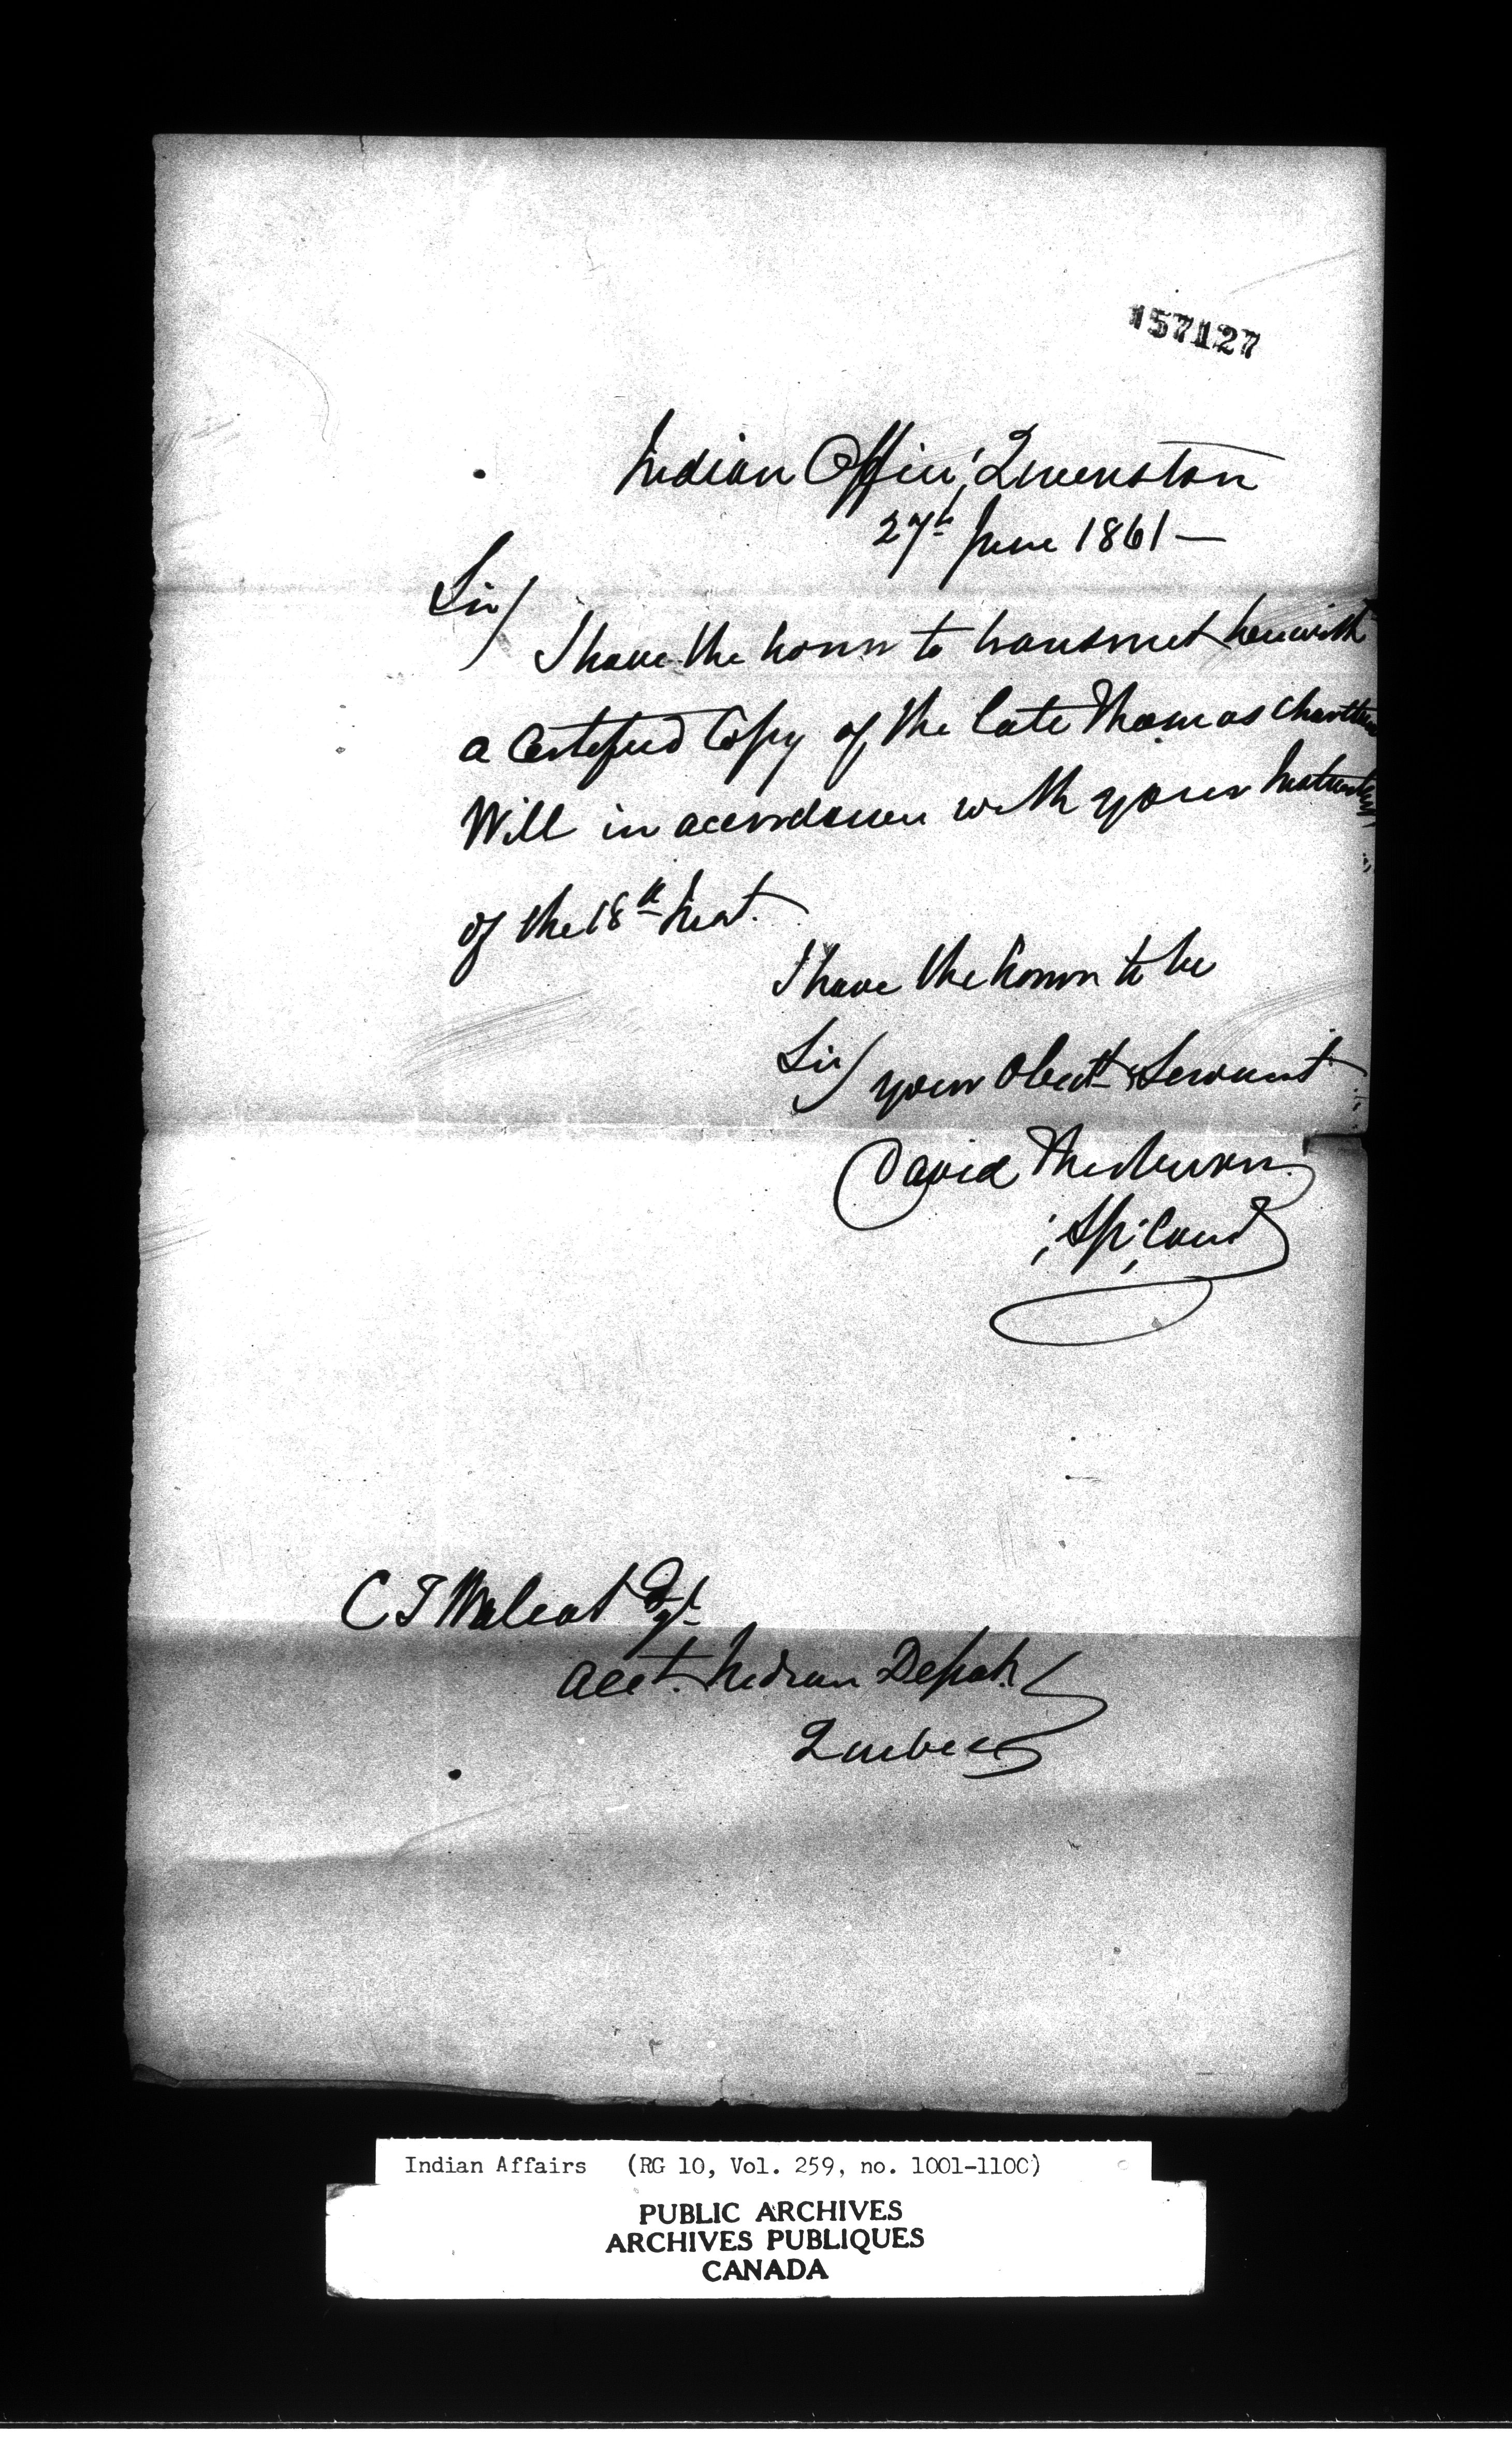 157127
Indian Office, Queenston
27th June 1861 —
Sir/
I have the honor to transmit herewith
a Certified Copy of the late Thomas
Will in accordance with your Instructions
of the 18th Inst.
I have the honor to be
Sir/ your Obedt Servant
David Thorburn
Sp; Comr
C T Walcot Esqr
Acct. Indian Depart.
Quebec
Indian Affairs (RG 10, Vol. 259, no. 1001-1100)
PUBLIC ARCHIVES
ARCHIVES PUBLIQUES
CANADA